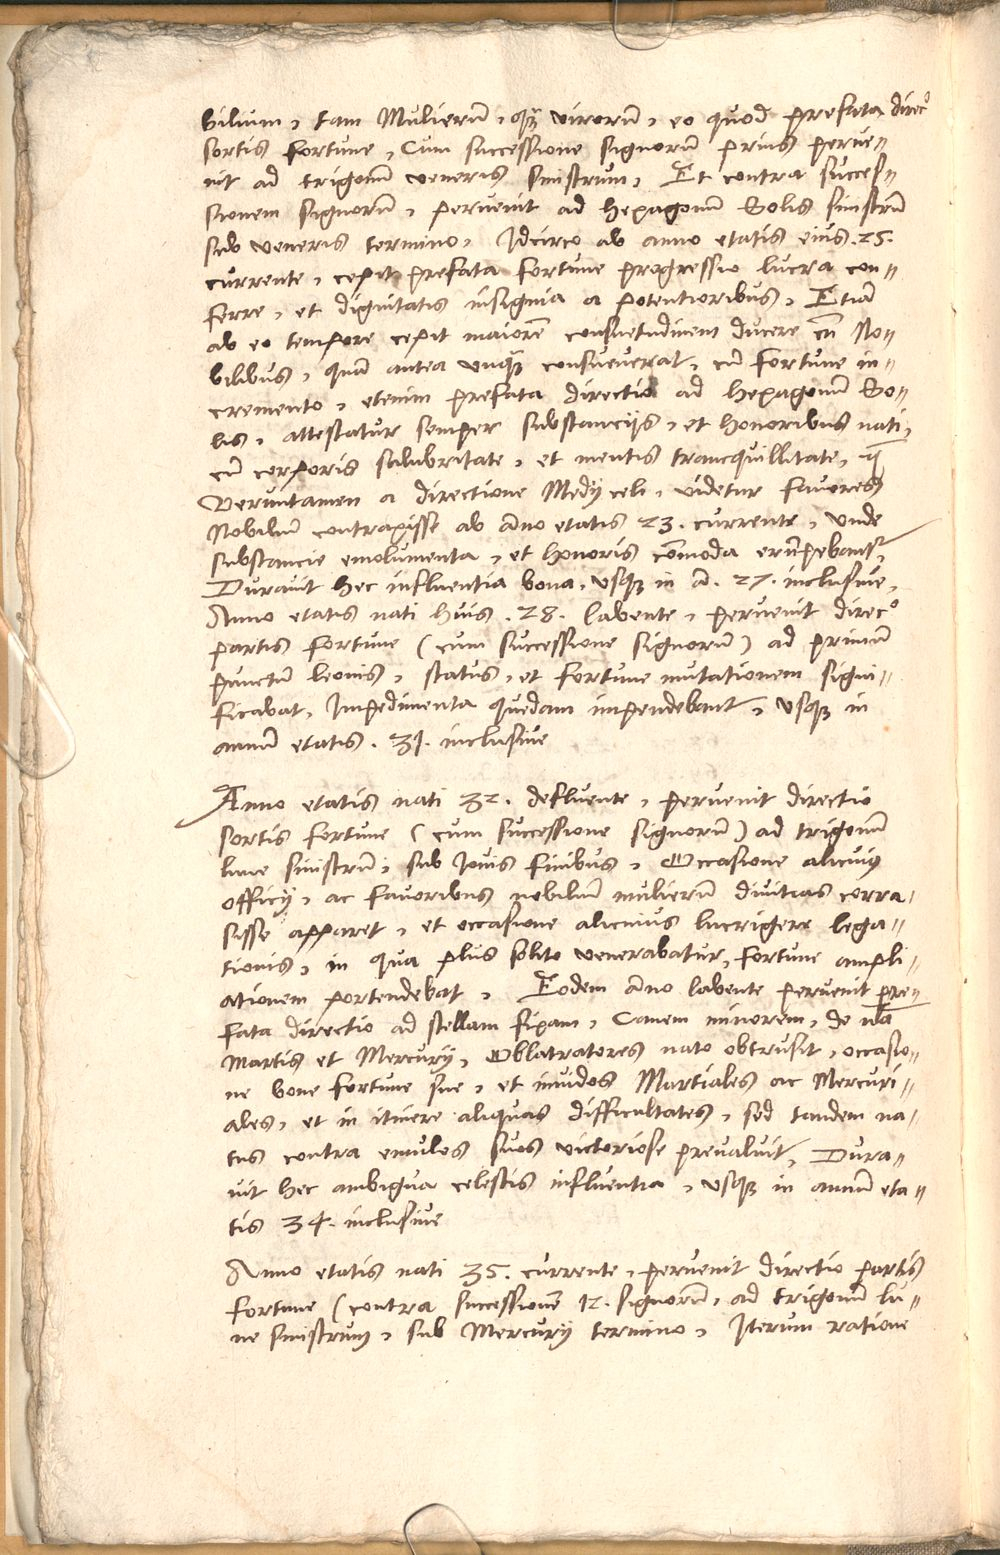 bilium, tam Mulierū, q̃ virorū, eo quod prefata direcº
sortis fortune, Cum successione signorū prius perue=
nit ad trigonū veneris sinistrum, Et contra succes=
sionem signorū, peruenit ad hexagonū Solis sinistrū
sub veneris termino, Idcirco ab anno etatis eius .25.
currente, cepit prefata fortune progressio lucra con=
ferre, et dignitatis insignia a potentioribus, Etiā
ab eo tempore cepit maiorē consuetudinem ducere cū No=
bilibus, quā antea vnq̃ consueuerat, cū fortune in=
cremento, etenim prefata directio ad hexagonū So=
lis, attestatur semper substancijs, et honoribus nati,
cū corporis salubritate, et mentis trancquillitate,
Veruntamen a directione Medij celi, videtur fauores
Nobiliū contraxisse ab āno etatis 23. currente, vnde
substancie emolumenta, et honoris cōmoda erūpebant,
Durauit hec influentia bona, vsq̃ in a. 27. inclusiue,
Anno etatis nati huis .28. labente, peruenit direcº
partis fortune (cum successione signorū) ad primū
punctū leonis, status, et fortune mutationem signi=
ficabat, Impedimenta quedam impendebant, vsq̃ in
annū etatis .31. inclusiue
Anno etatis nati 32. defluente, peruenit directio
sortis fortune (cum successione signorū) ad trigonū
lune sinistrū, sub Iouis finibus, Occasione alicuius
officij, ac fauoribus nobiliū mulierū diuitias corra=
sisse apparet, et occasione alicuius lucrigere lega=
tionis, in qua plus solito venerabatur, fortune ampli=
ationem portendebat, Eodem āno labente peruenit pre=
fata directio ad stellam fixam, Canem minorem, de nā
Martis et Mercurij, Oblatratores nato obtrusit, occasio=
ne bone fortune sue, et inuidos Martiales ac Mercuri=
ales, et in itinere aliquas difficultates, sed tandem na=
tus contra emulos suos victoriose preualuit, Dura=
uit hec ambigua celestis influentia, vsq̃ in annū eta=
tis 34. inclusiue
Anno etatis nati 35. currente, peruenit directio partis
fortune (contra successionē 12. signorū, ad trigonū lu=
ne sinistrum, sub Mercurij termino, Iterum ratione